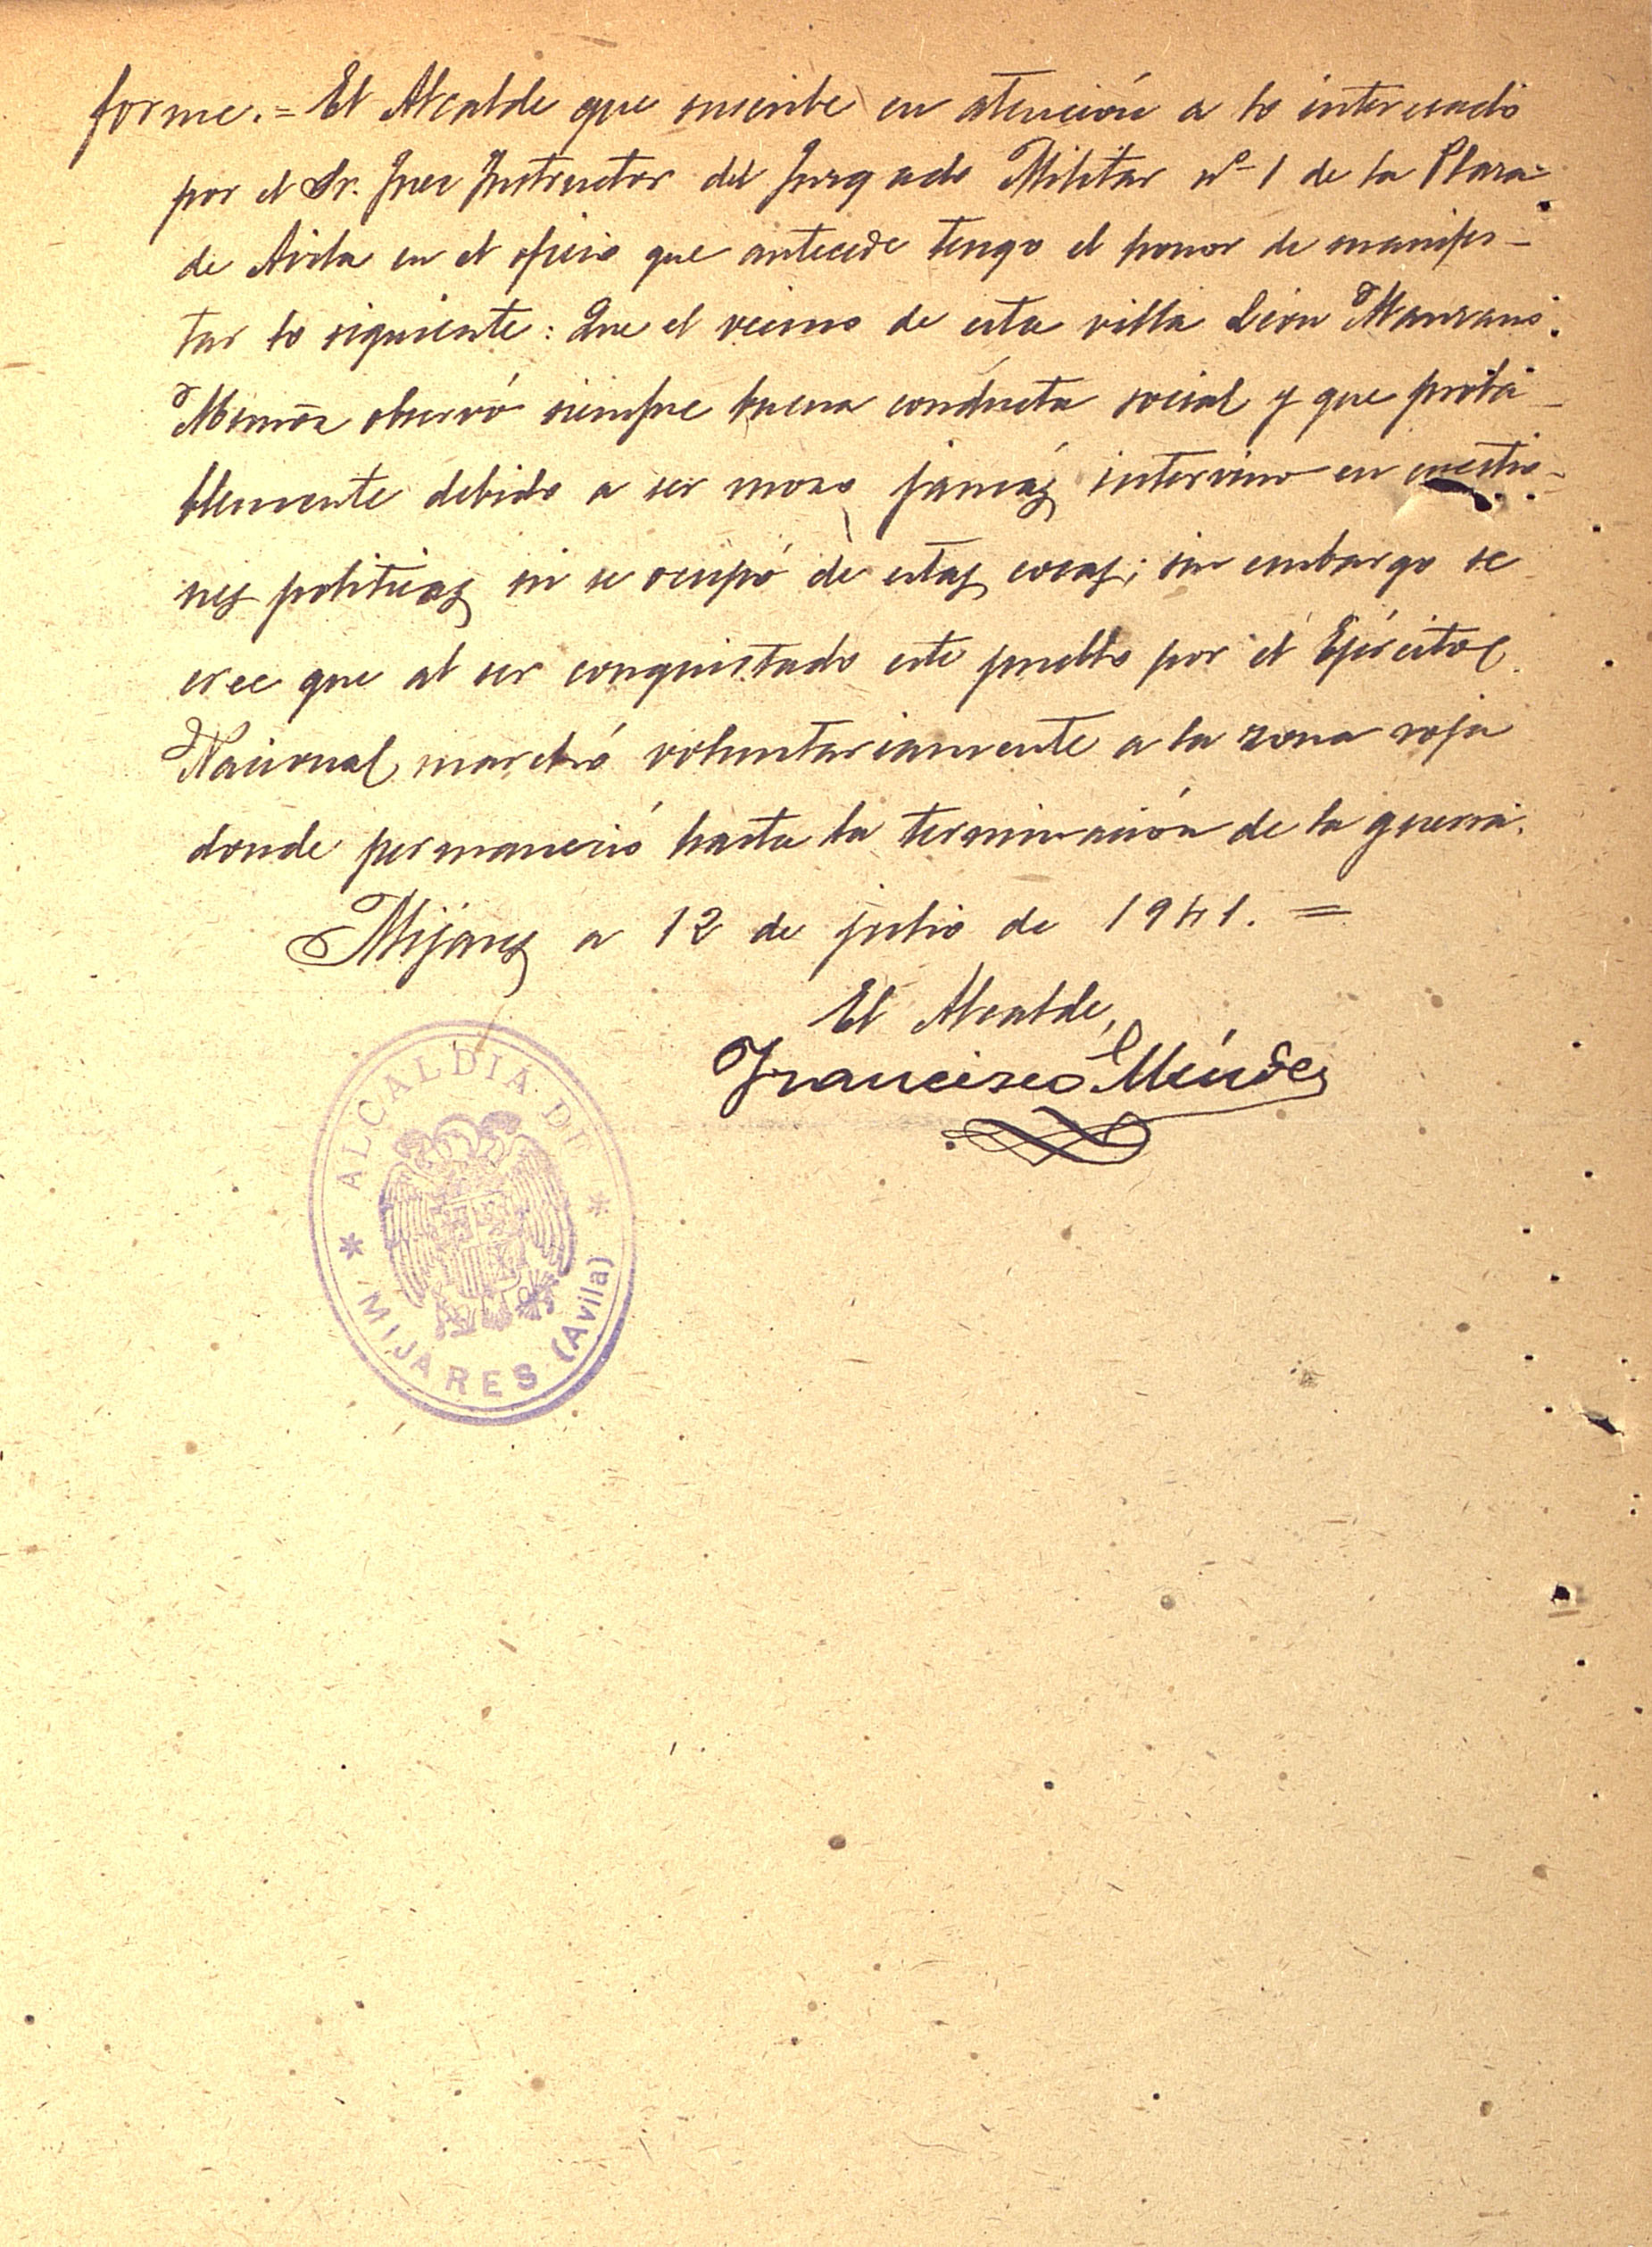 forme.= El Alcalde que suscribe en atención a lo interesado
por el Sr. Juez Instructor del Juzgado Militar nº 1 de la Plaza
de Avila en el oficio que antecede tengo el honor de manifes-
tar lo siguiente: Que el vecino de esta villa León Manzano
observó siempre buena conducta social y que proba-
blemente debido a ser mozo jamás intervino en cuestio-
nes politicas ni se ocupó de estas cosas; sin embargo se
cree que al ser conquistado este pueblo por el Ejército
Nacional marchó voluntariamente a la zona roja
donde permaneció hasta la terminación de la guerra.
Mijares a 12 de julio de 1941.=
El Alcalde,
Francisco Méndez
ALCALDIA DE
* *
MIJARES (Avila)